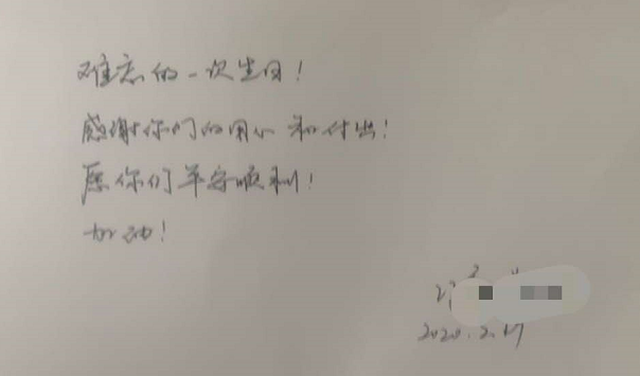 难忘的一次生日!
感谢你们的用心和付出!
愿你们平安顺利!
加油!
2020.2.17